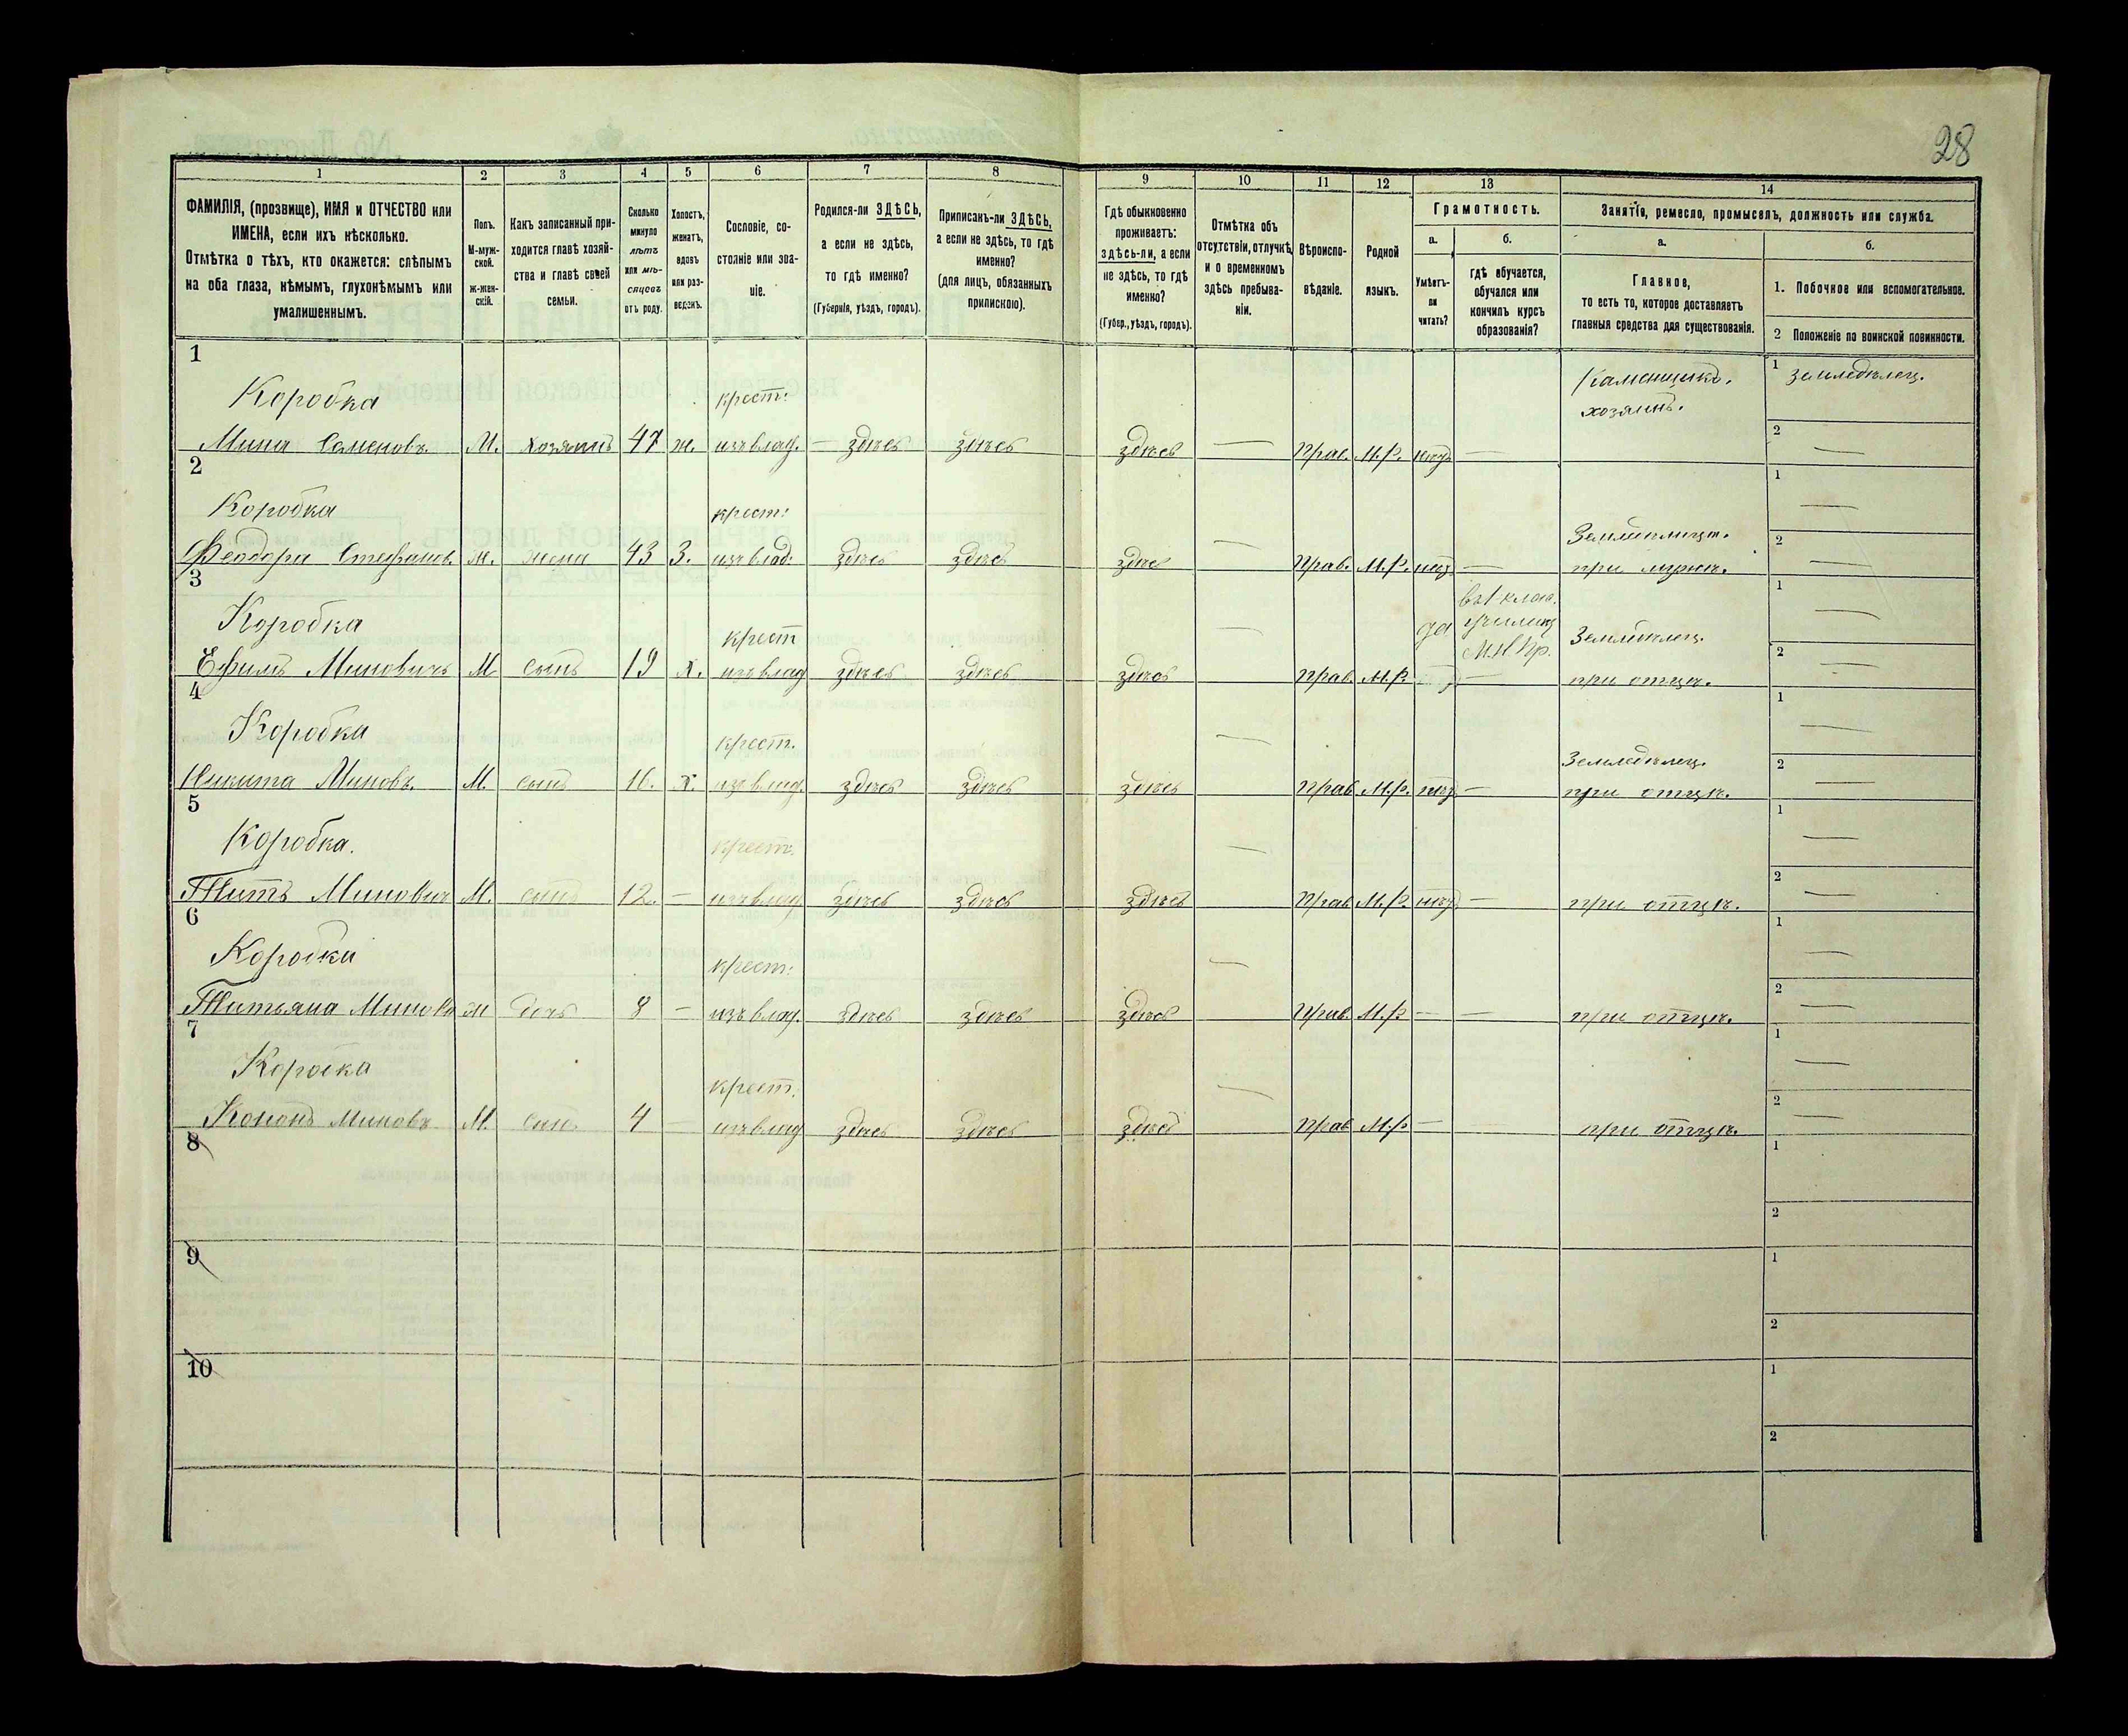 28
1 2 3 4 5 6 7 8 9 10 11 12 13 14
ФАМИЛІЯ, (прозвище), ИМЯ и ОТЧЕСТВО или
ИМЕНА, если ихъ нѣсколько.
Отмѣтка о тѣхъ, кто окажется: слѣпымъ
на оба глаза, нѣмымъ, глухонѣмымъ или
умалишеннымъ.
Полъ.
М-муж-
ской.
ж-жен-
скій.
Какъ записанный при-
ходится главѣ хозяй-
ства и главѣ своей
семьи.
Сколько
минуло
лѣтъ
или мѣ-
сяцевъ
отъ роду.
Холостъ,
женатъ,
вдовъ
или раз-
веденъ.
Сословіе, со-
стояніе или зва-
ніе.
Родился-ли ЗДѢСЬ,
а если не здѣсь,
то гдѣ именно?
(Губернія, уѣздъ, городъ).
Приписанъ-ли ЗДѢСЬ,
а если не здѣсь, то гдѣ
именно?
(для лицъ, обязанныхъ
припискою).
Гдѣ обыкновенно
проживаетъ:
здѣсь-ли, а если
не здѣсь, то гдѣ
именно?
(Губер., уѣздъ, городъ).
Отмѣтка объ
отсутствіи, отлучкѣ,
и о временномъ
здѣсь пребыва-
ніи.
Вѣроиспо-
вѣданіе.
Родной
языкъ.
Грамотность.
а.
Умѣетъ-
ли
читать?
б.
гдѣ обучается,
обучался или
кончилъ курсъ
образованія?
Занятіе, ремесло, промыселъ, должность или служба.
а.
Главное,
то есть то, которое доставляетъ
главныя средства для существованія.
б.
1. Побочное или вспомогательное.
2 Положеніе по воинской повинности.
1
Коробка крест: Каменщикъ. 1 земледѣлец.
хозяинъ.
Мина Семеновъ. М. хозяинъ 47 ж. изъ влад. — здѣсь здѣсь здѣсь — Прав. М.Р. нѣтъ — 2 —
2
Коробка крест: — Землѣдѣлиц. 1 —
Феодора Стефанов. ж. жена 43 З. изъ влад: здѣсь здѣсь здѣсь Прав. М.Р. нѣтъ — при мужѣ. 2 —
3
Коробка крест — да въ 1 клас. 1 —
училищ Землѣдѣлец.
М.Н.Пр.
Ефимъ Миновичъ М сынъ 19 х. изъ влад здѣсь здѣсь здѣсь Прав. М.Р. — при отцѣ. 2 —
4
Коробка крест. — Земледѣлец. 1 —
Никита Миновъ. М. сынъ 16. х. изъ влад. здѣсь здѣсь здѣсь Прав М.Р. нѣтъ — при отцѣ. 2 —
5
Коробка. крест. — 1 —
Титъ Минович М. сынъ 12. — изъ влад здѣсь здѣсь здѣсь Прав М.Р. нѣтъ — при отцѣ. 2 —
6
Коробка крест: — 1 —
Татьяна Минова ж дочь 8 — изъ влад. здѣсь здѣсь здѣсь Прав. М.Р — — при отцѣ. 2 —
7
Коробка крест. — 1 —
Кононъ Миновъ М. сынъ 4 — изъ влад здѣсь здѣсь здѣсь Прав М.Р — — при отцѣ. 2 —
8 1
2
9 1
2
10 1
2